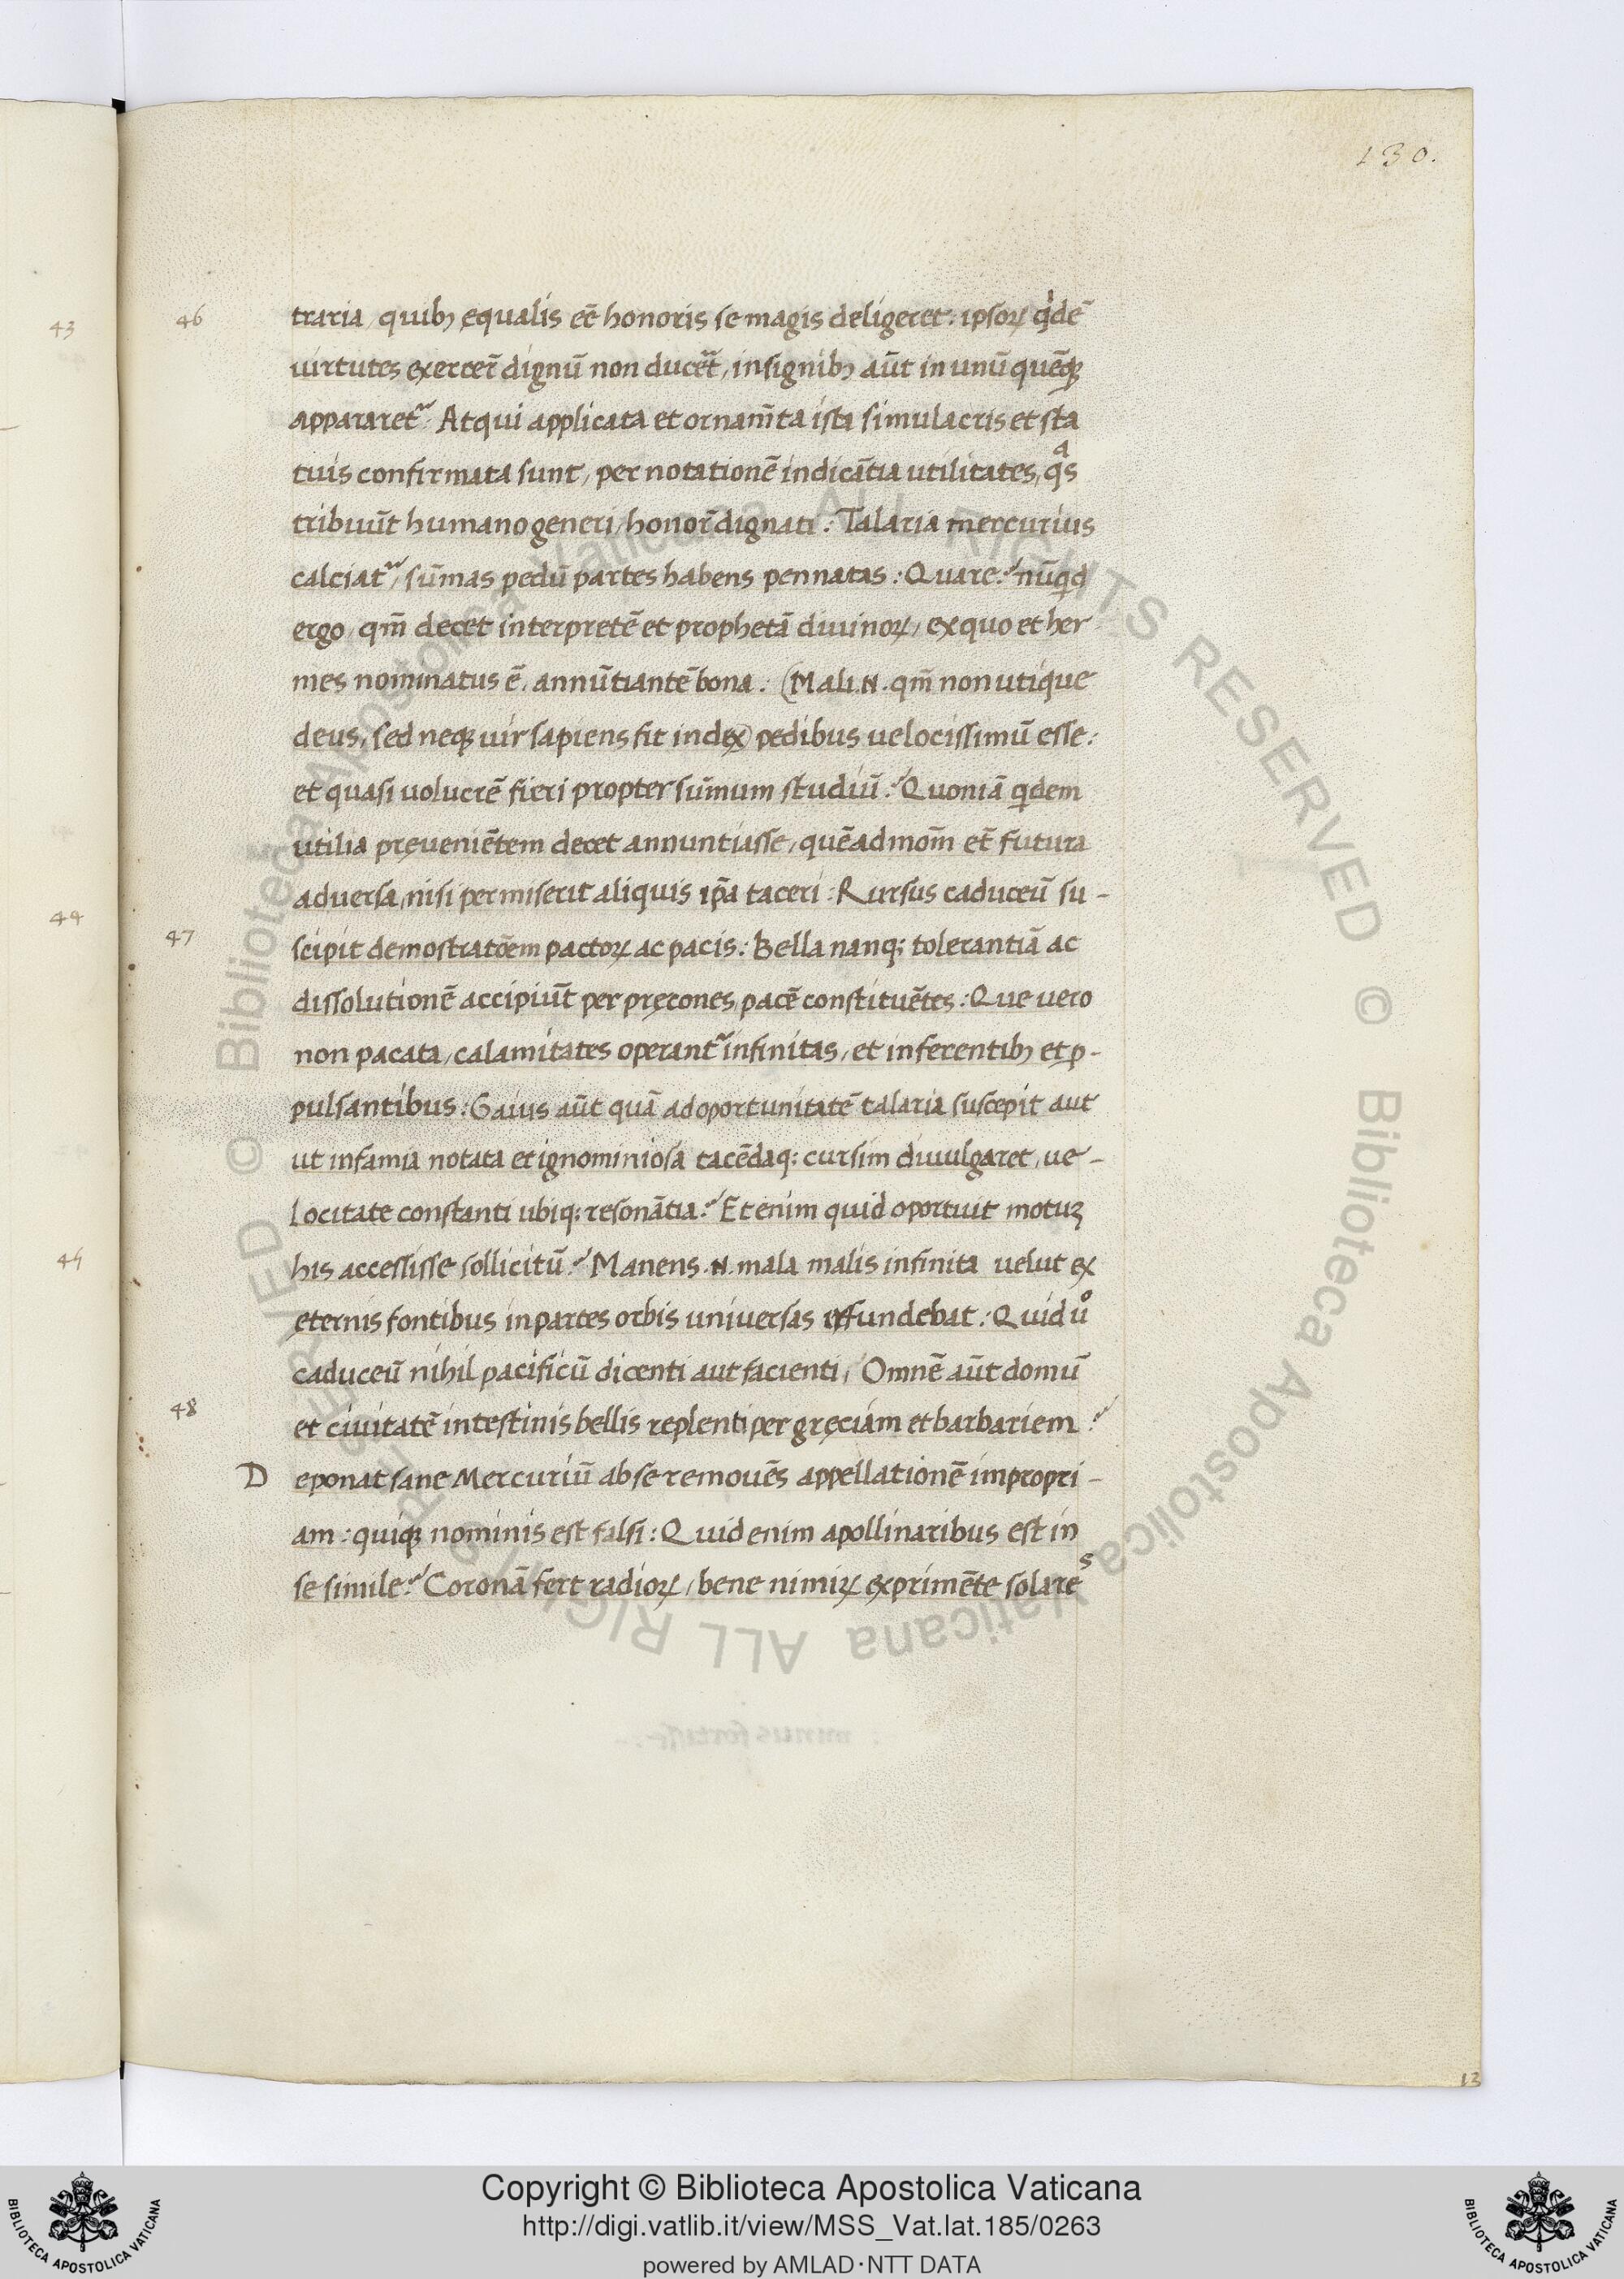 130.
43
46
traria, quibꝫ ęqualis eē honoris se magis deligeret: ipsoꝝ qͥdē
uirtutes exercer̄ dignū non ducer̄t, insignibꝫ aūt in unū quēqꝫ
appararet᷑. At qui applicata et ornam̄ta ista simulacris et sta
tuis confirmata sunt, per notationē indicātia utilitates, qͣs
tribuūt humano generi, honor̄ dignati: Talaria mercurius
calciat᷑, sūmas pedū partes habens pennatas: Quare? nūqd
ergo, qm̄ decet interpretē et prophetā diuinoꝝ, ex quo et her
mes nominatus ē, annūtiantē bona: (Mali .N. qm̄ non utique
deus, sed neqꝫ uir sapiens fit index) pedibus uelocissimū esse:
et quasi uolucrē fieri propter sūmum studiū? Quoniā qdem
utilia pręueniētem decet annuntiasse, quēadmom̄ et̄ futura
aduersa, nisi permiserit aliquis ip̄a taceri: Rursus caduceū su-
44
47
scipit demostratōem pactoꝝ ac pacis: Bella nanqꝫ tolerantiā ac
dissolutionē accipiūt per pręcones, pacē constituētes: Que uero
non pacata, calamitates operant᷑ infinitas, et inferentibꝫ et p-
pulsantibus: Gaius aūt quā ad oportunitatē talaria suscepit aut
ut infamia notata et ignominiosa tacēdaqꝫ cursim diuulgaret, ue-
locitate constanti ubiqꝫ resonātia? Et enim quid oportuit motuꝫ
45
his accessisse sollicitū? Manens .N. mala malis infinita uelut ex
ęternis fontibus in partes orbis uniuersas effundebat: Quid uͦ
caduceū nihil pacificū dicenti aut facienti, Omnē aūt domū
48
et ciuitatē intestinis bellis replenti per gręciam et barbariem?
D eponat sane Mercuriū ab se remouēs appellationē impropri-
am: quiqꝫ nominis est falsi: Quid enim apollinaribus est in
se simile? Coronā fert radioꝝ, bene nimiꝝ exprimēte solareˢ
13
Copyright © Biblioteca Apostolica Vaticana
http://digi.vatlib.it/view/MSS_Vat.lat.185/0263
powered by AMLAD·NTT DATA
BIBLIOTECA APOSTOLICA VATICANA
BIBLIOTECA APOSTOLICA VATICANA
© Biblioteca Apostolica Vaticana ALL RIGHTS RESERVED © Biblioteca Apostolica Vaticana ALL RIGHTS RESERVED